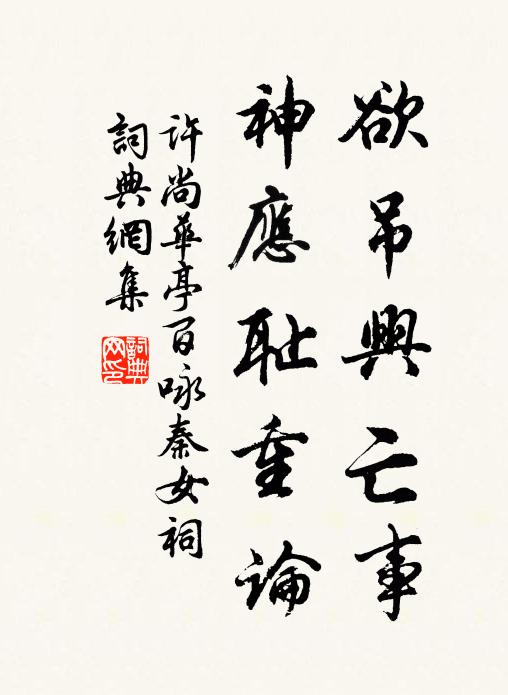 欲吊興亡事
神應耻重論
許尚華亭百咏秦女祠
詞典網集
詞典網印